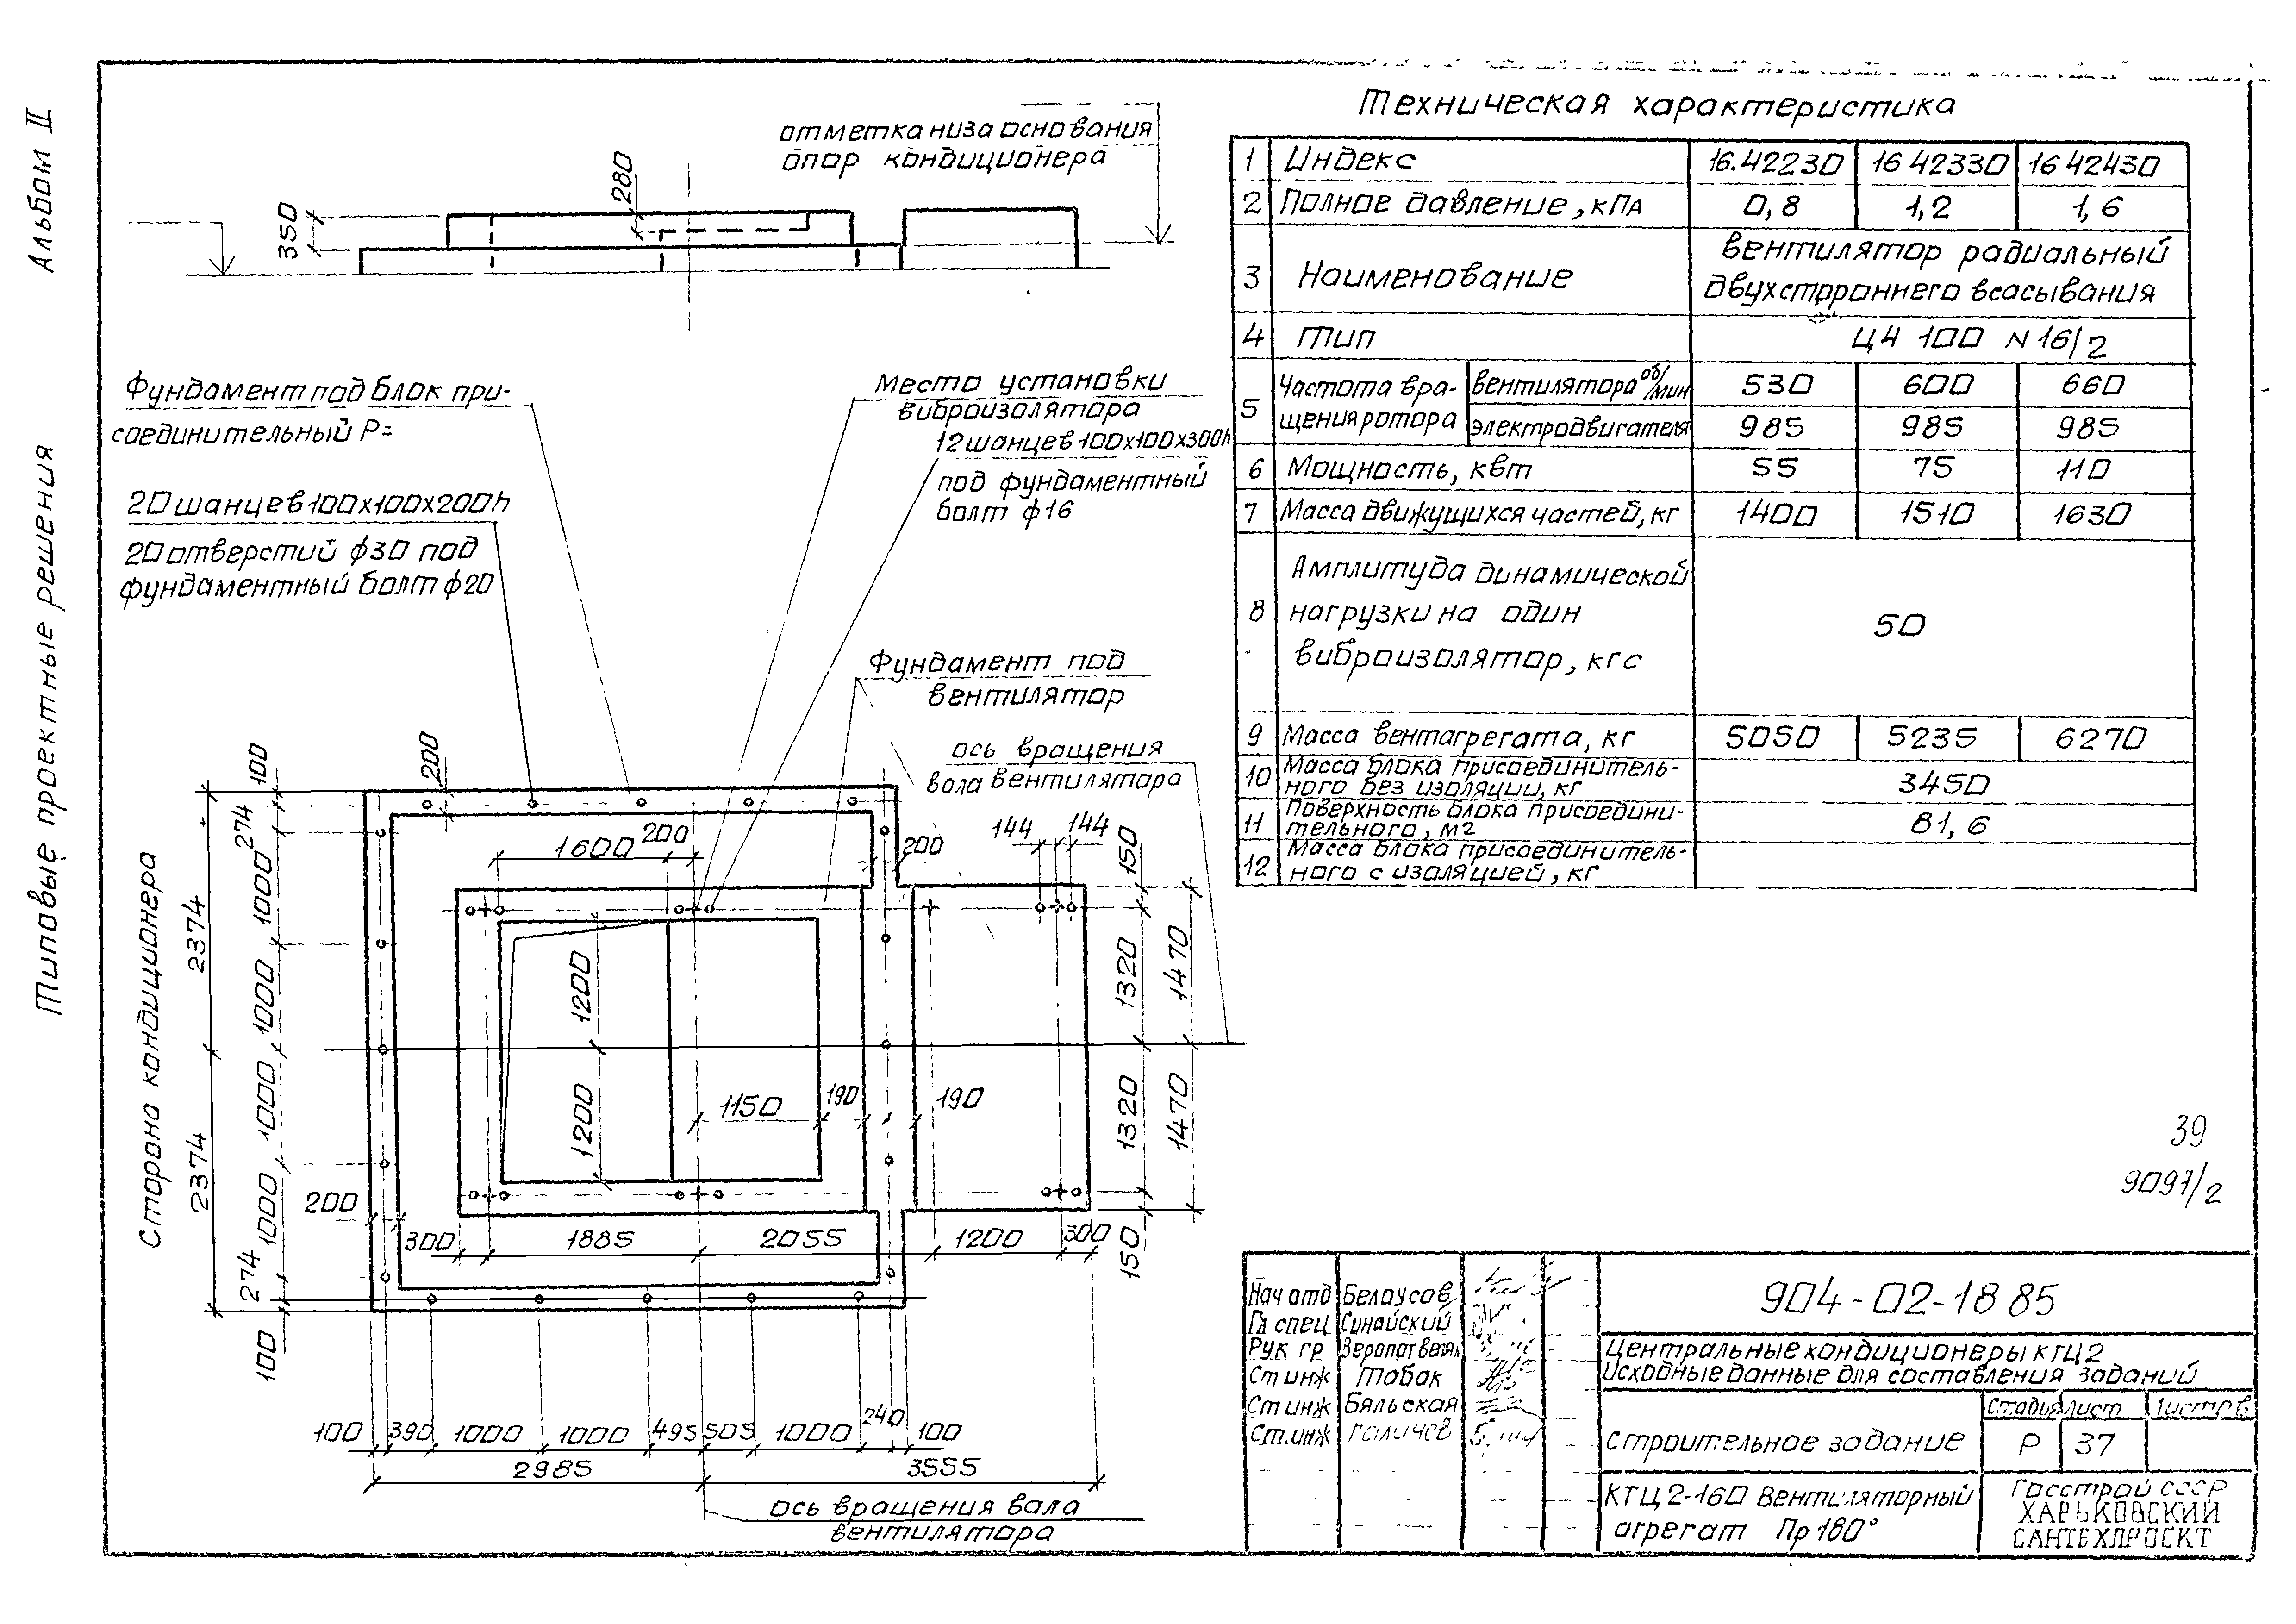 Альбом II
Типовые проектные решения
отметка низа основания
опор кондиционера
280
350
Фундамент под блок при-
соединительный Р=
20 шанцев 100х100х200h
20 отверстий ф30 под
фундаментный болт ф20
место установки
виброизолятора
12 шанцев 100х100х300h
под фундаментный
болт ф16
Фундамент под
вентилятор
ось вращения
вала вентилятора
Сторона кондиционера
2374
2374
100
274
1000
1000
1000
1000
274
100
200
200
1600
200
200
144
144
150
1320
1470
1320
1470
150
1200
1200
1150
190
190
300
1885
2055
1200
300
100
390
1000
1000
495
505
1000
240
100
2985
3555
ось вращения вала
вентилятора
Техническая характеристика
1 Индекс 16.42230 16 42330 16 42430
2 Полное давление, кПА 0,8 1,2 1,6
3 Наименование вентилятор радиальный
двухстороннего всасывания
4 Тип Ц4 100 N16/2
5 Частота вра-
щения ротора
вентилятора об/мин 530 600 660
электродвигателя 985 985 985
6 Мощность, квт 55 75 110
7 Масса движущихся частей, кг 1400 1510 1630
8 Амплитуда динамической
нагрузки на один
виброизолятор, кгс
50
9 Масса вентагрегата, кг 5050 5235 6270
10 Масса блока присоединитель-
ного без изоляции, кг 3450
11 Поверхность блока присоедини-
тельного, м2 81,6
12 Масса блока присоединитель-
ного с изоляцией, кг
39
9097/2
Нач отд Белоусов
Гл спец Синайский
Рук гр
Ст инж Табак
Ст инж Бяльская
Ст.инж
904-02-18 85
Центральные кондиционеры КТЦ2
Исходные данные для составления заданий
Строительное задание
Стадия Лист Листов
Р 37
КТЦ2-160 Вентиляторный
агрегат Пр 180°
Госстрой СССР
ХАРЬКОВСКИЙ
САНТЕХПРОЕКТ